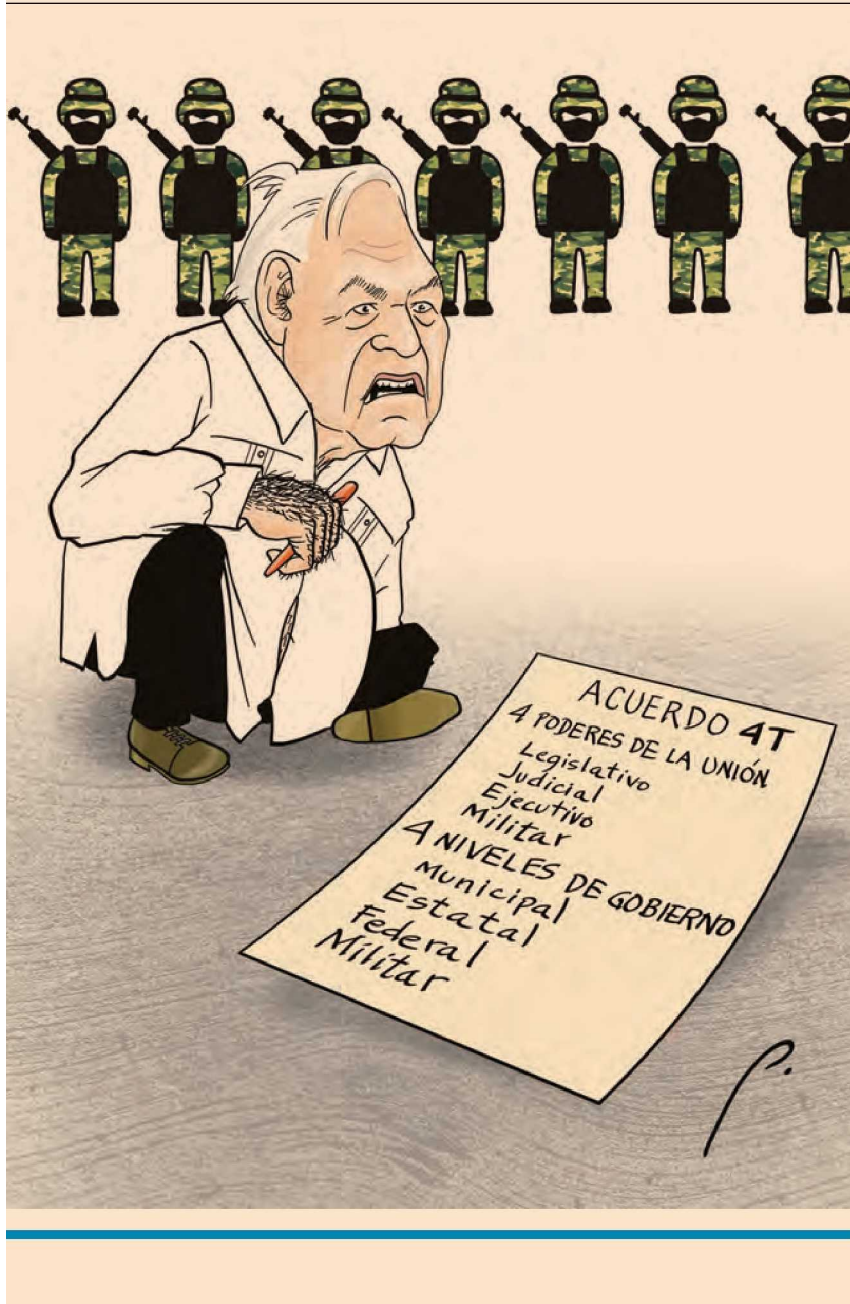 ACUERDO 4T
4 PODERES DE LA UNIÓN
Legislativo
Judicial
Ejecutivo
Militar
4 NIVELES DE GOBIERNO
Municipal
Estatal
Federal
Militar